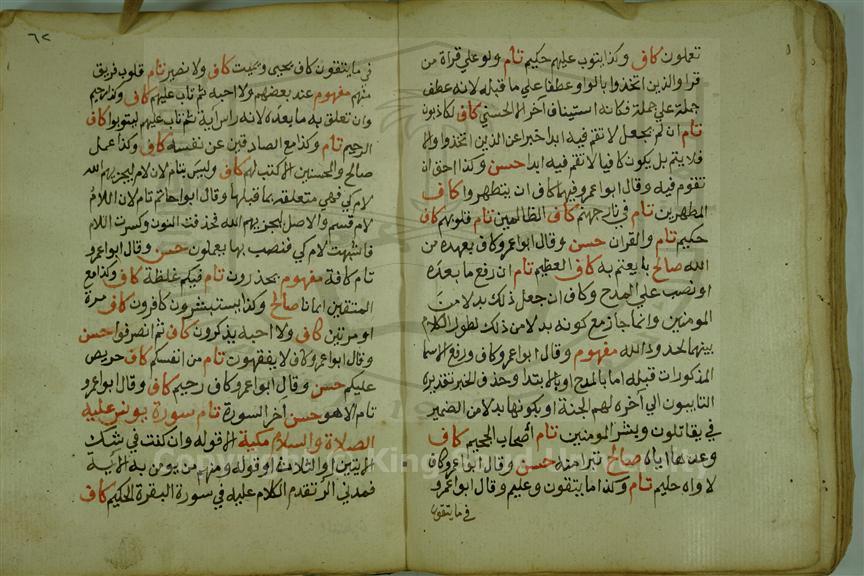 تعلون كاف وكذا يتوب عليهم حكيم تام ولو علي قراة من
قرا والذين اتخذوا بالواو عطفا علي ما قبله لانه عطف
جملة علي جملة فكانه استيناف اخر الا الحسني كاف لكاذبون
تام ان لم يجعل لا تقم فيه ابدا خبرا عن الذين اتخذوا والا
فلا يتم بل يكون كافيا لا تقم فيه ابدا حسن وكذا احق ان
تقوم فيه وقال ابو عمرو فيها كاف ان يتطهروا كاف
المطهرين تام في نار جهنم كاف الظالمين تام قلوبهم كاف
حكيم تام والقران حسن وقال ابو عمرو كاف بعهده من
الله صالح بايعتم به كاف العظيم تام ان رفع ما بعده
او نصب علي المدح وكاف ان جعل ذلك بدلا من
المومنين وانما جاز مع كونه بدلا من ذلك لطول الكلام
بينهما لحدود الله مفهوم وقال ابو عمرو كاف ورفع الاسما
المذكورات قبله اما بالمدح او بالابتدا وحذف الخبر تقديره
التايبون الي اخره لهم الجنة او بكونها بدلا من الضمير
في يقاتلون وبشر المومنين تام أصحاب الجحيم كاف
وعدها اياه صالح تبرا منه حسن وقال ابو عمرو كاف
لاواه حليم تام وكذا ما يتقون وعليم وقال ابو عمرو
في ما يتقون
٦٢
في ما يتقون كاف يحيى ويميت كاف ولا نصير تام قلوب فريق
منهم مفهوم عند بعضهم ولا احبه ثم تاب عليهم كاف وكذا رحيم
وان تعلق به ما بعده لانه راس اية ثم تاب عليهم ليتوبوا كاف
الرحيم تام وكذا مع الصادقين عن نفسه كاف وكذا عمل
صالح والمحسنين الا كتب لهم كاف وليس بتام لان لام ليجزيهم الله
لام كي فهي متعلقه بما قبلها وقال ابو حاتم تام لان اللام
لام قسم والاصل ليجزيهم الله فحذفت النون وكسرت اللام
فاشبهت لام كي فنصب بها يعملون حسن وقال ابو عمرو
تام كافة مفهوم يحذرون تام فيكم غلظة كاف وكذا مع
المتقين ايمانا صالح وكذا يستبشرون كافرون كاف مرة
او مرتين كاف ولا احبه يذكرون كاف ثم انصرفوا حسن
وقال ابو عمرو كاف لا يفقهون تام من انفسكم كاف حريص
عليكم حسن وقال ابو عمرو كاف رحيم كاف وقال ابو عمرو
تام الا هو حسن آخر السورة تام سورة يونس عليه
الصلاة والسلام مكية الا قوله وان كنت في شك
الايتين او الثلاث او قوله ومنهم من يومن به الاية
فمدني الر تقدم الكلام عليه في سورة البقرة الحكيم كاف